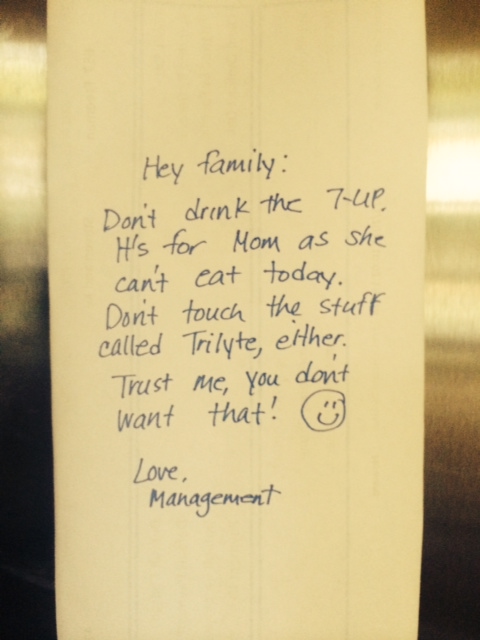 Hey family:
Don't drink the 7-UP.
It's for Mom as she
can't eat today.
Don't touch the stuff
called Trilyte, either.
Trust me, you don't
want that!
Love,
Management